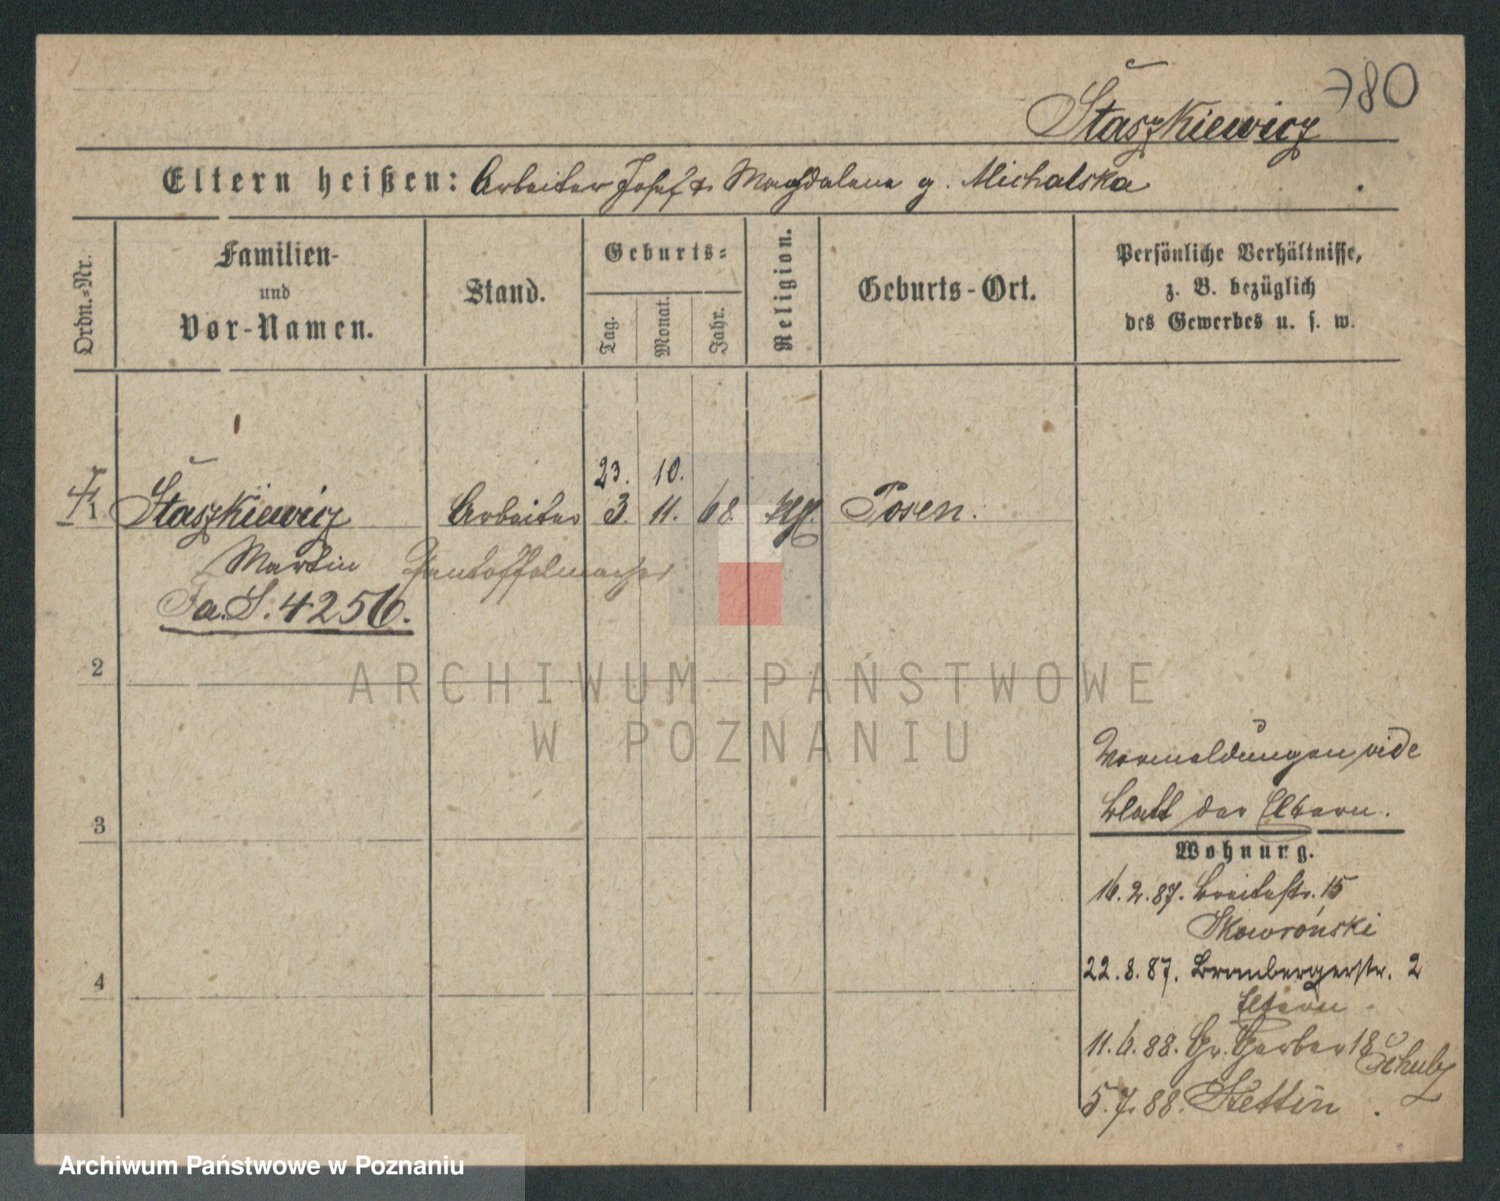 780
Staszkiewicz
Eltern heißen: Arbeiter Josef & Magdalena g. Michalska
Ordn.-Nr.
Familien-
und
Vor-Namen.
Stand.
Geburts-
Tag.
Monat.
Jahr.
Religion.
Geburts-Ort.
Persönliche Verhältnisse,
z. B. bezüglich
des Gewerbes u. s. w.
23. 10.
1 Staszkiewicz Arbeiter 3. 11. 68. Posen.
Martin Pantoffelmacher
Fa. S. 4256.
2
3
4
Vormeldungen vide
Blatt der Eltern.
Wohnung.
16.2.87. Breitestr. 15
Skowroński
22.8.87. Brombergerstr. 2
Eltern
11.6.88. Gr. Gerber 18 Schulz
5.7.88. Stettin.
ARCHIWUM PAŃSTWOWE
W POZNANIU
Archiwum Państwowe w Poznaniu